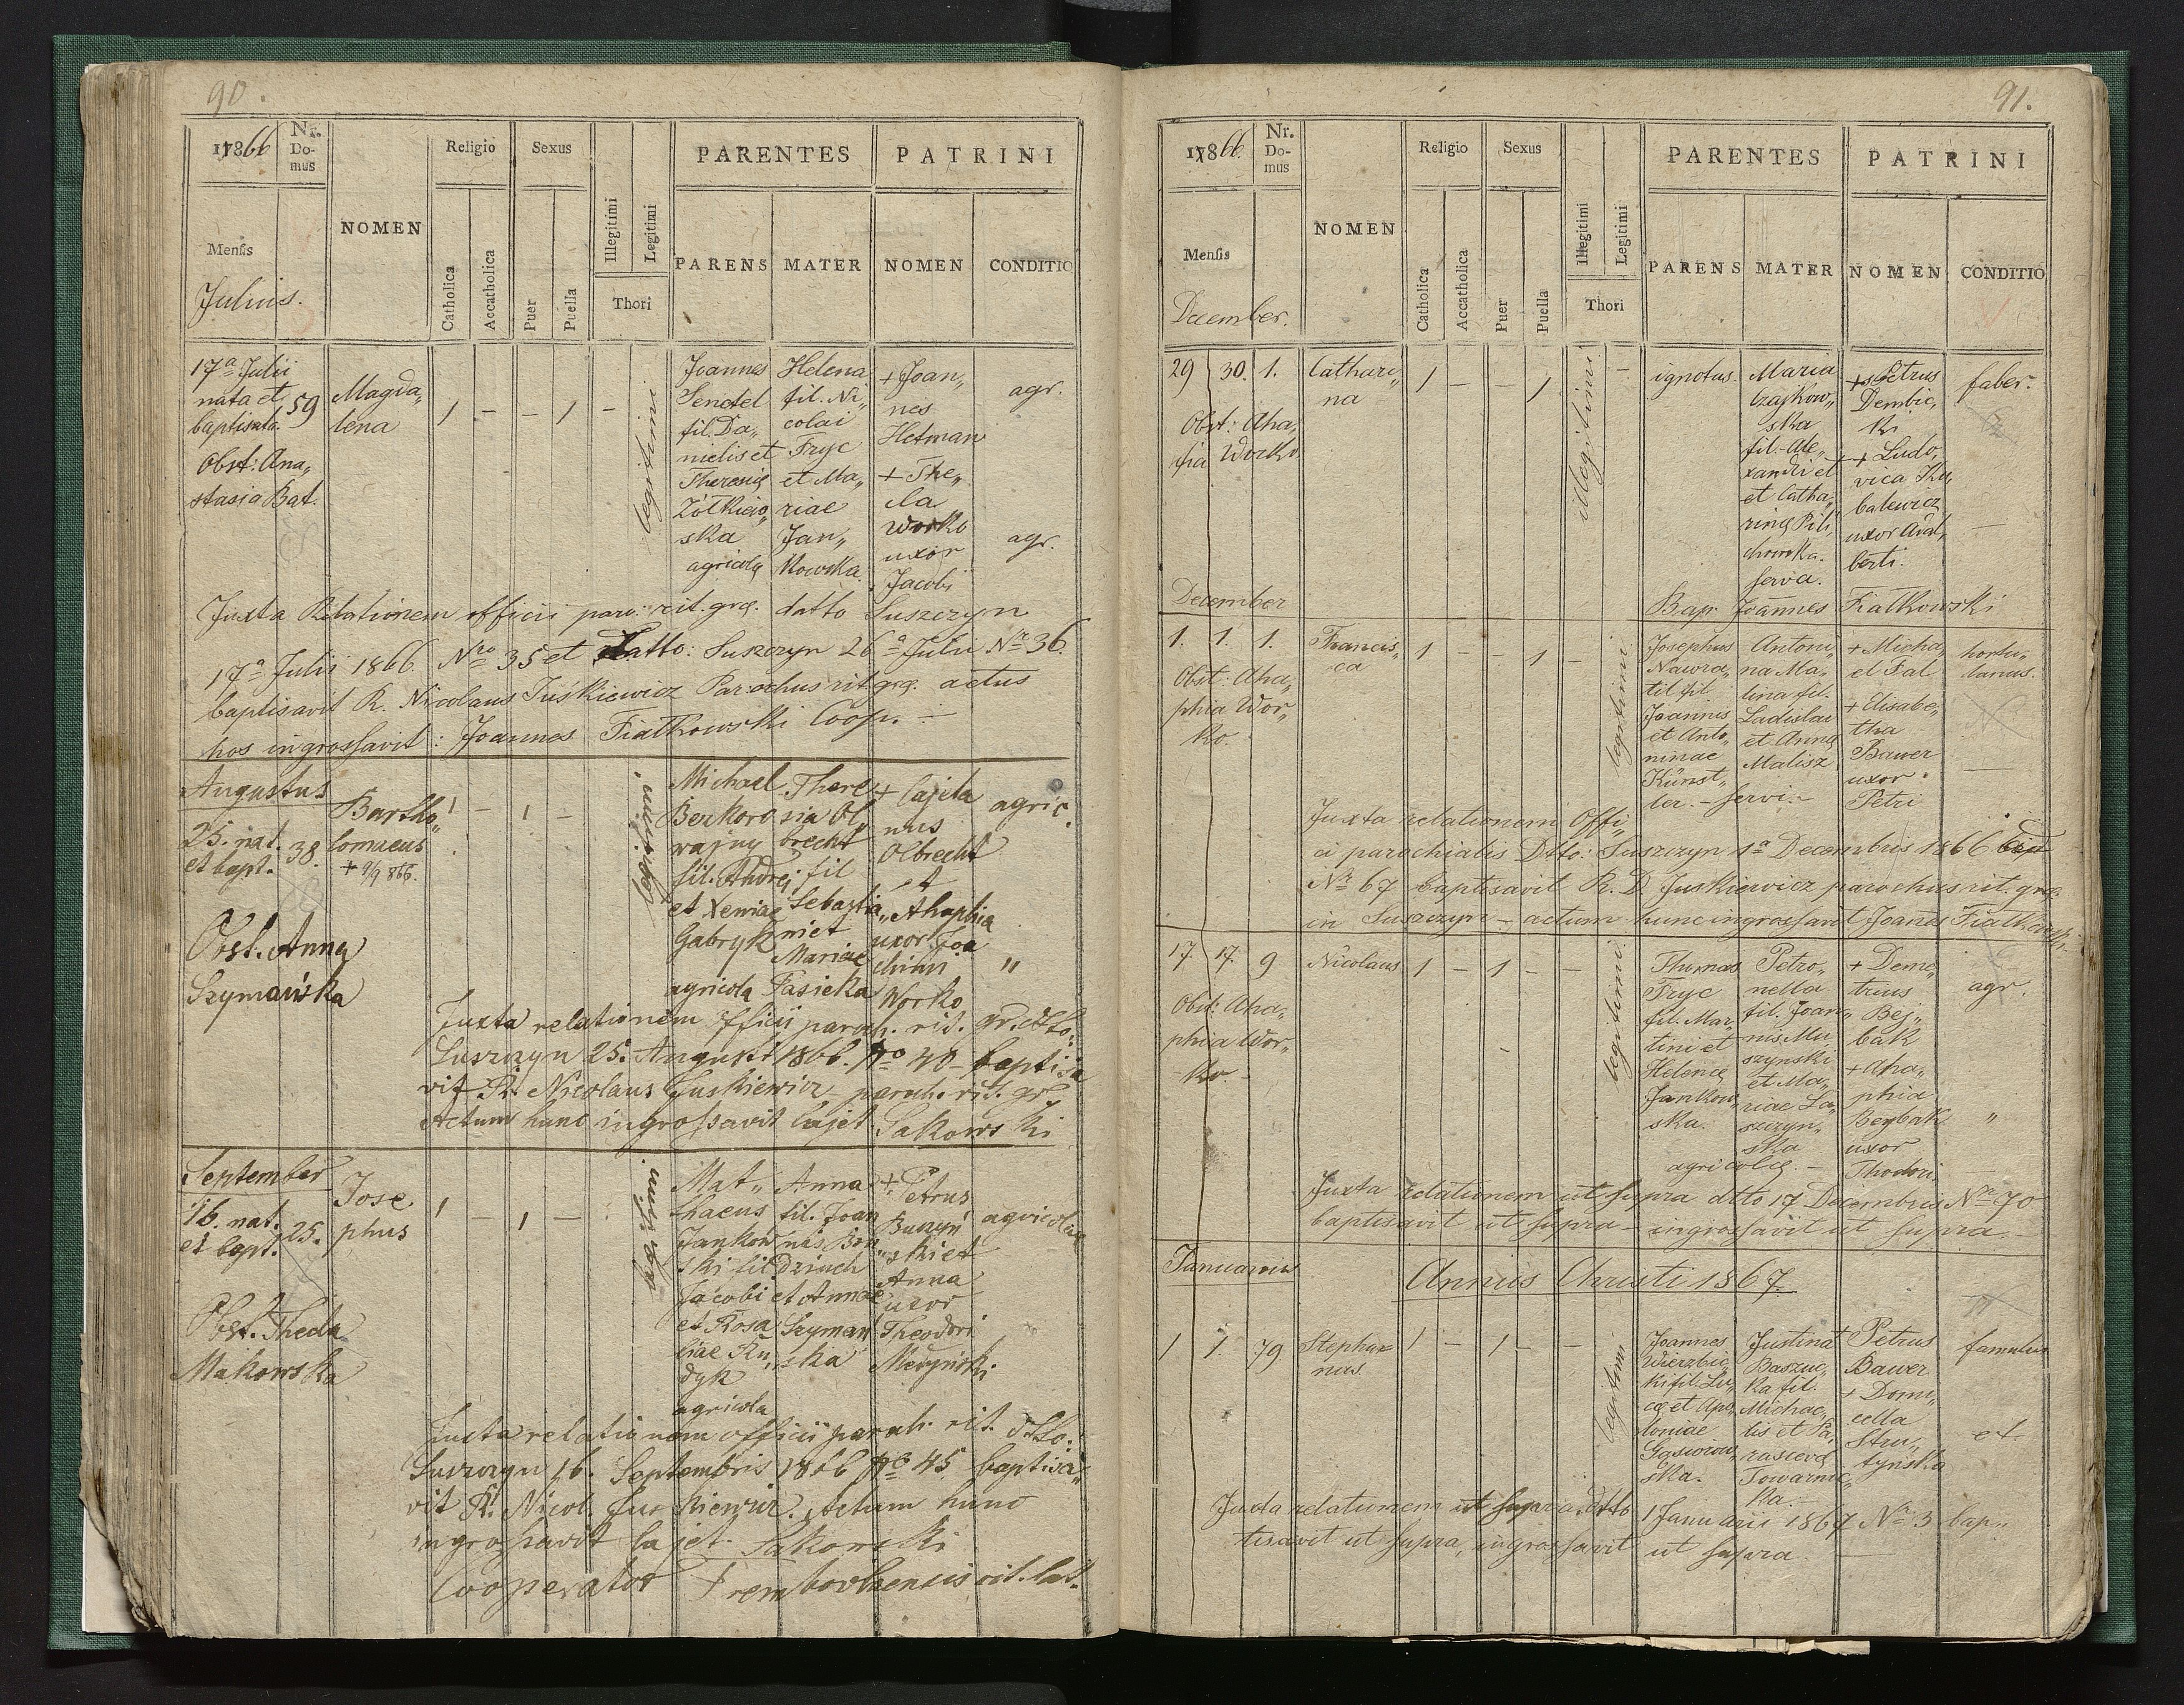 90.
1866
Nr. Do- mus
NOMEN
Religio
Sexus
Illegitimi
Legitimi
Thori
PARENTES
PATRINI
Mensis
Julius.
Catholica
Accatholica
Puer
Puella
PARENS
MATER
NOMEN
CONDITIO
17a Julii
nata et
baptisata.
Obst: Ana„
stasia Bat.
59
Magda„
lena
1 - - 1 -
legitimi
Joannes
Sendel
fil. Da„
nielis et
Theresię
Żółkiew„
ska
agricolę
Helena
fil. Ni„
colai
Fryc
et Ma„
riae
Jan„
kowska.
+ Joan„
nes
Hetman
+ The„
cla
Worko
uxor
Jacobi
agr.
agr.
Juxta Relationem officii paro: rit. gre. datto Suszczyn
17a Julii 1866. Nro 35 et Datto: Suszczyn 26a Julii Nr 36.
baptisavit R. Nicolaus Juśkiewicz Parochus rit gre. actus
hos ingrossavit: Joannes Fiałkowski Coop.
Augustus
25. nat.
et bapt.
38.
Obst. Anna
Szymańska
Bartho„
lomaeus
+ 9/9 866.
1 - 1 -
legitimi.
Michael
Berkoro
wajny
fil. Andrej
et Xeniae
Gabryk
agricola
There
sia Ol
brecht
fil
Sebastia„
ni et
Mariae
Pasieka
+ Cajeta
nus
Olbrecht
et
Ahaphia
uxor Joa
chimi
Worko
agric.
"
Juxta relationem officii paroch. rit. gr. dtto.
Suszczyn 25. Augusti 1866. No 40 - baptisa
vit R. Nicolaus Juskiewicz paroh. rit. gr.
Actum hunc ingrossavit Cajet. Sakowski
September
16. nat.
et bapt.
25.
Obst. Thecla
Makowska
Jose
phus
1 - 1 -
legitimi.
Mat„
thaeus
Jankow
ski fil
Jacobi
et Rosa
liae Ru„
dyk
agricola
Anna
fil. Joan
nis Bon„
dziuch
et Annae
Szymań
ska
+ Petrus
Buczyń
ski et
Anna
uxor
Theodori
Medyński
agricolae
Juxta relationem officii paroh. rit. dtto:
Suszczyn 16. Septembris 1866 No 45 baptisa„
vit R. Nicol. Juskiewicz. Actum hunc
ingrossavit Cajet. Sakowski
Cooperator Trembovlensis rit. lat.
91.
1866.
Nr. Do- mus
NOMEN
Religio
Sexus
Illegitimi
Legitimi
Thori
PARENTES
PATRINI
Mensis
December.
Catholica
Accatholica
Puer
Puella
PARENS
MATER
NOMEN
CONDITIO
29 30. 1.
Obst: Aha„
fia Worko
Cathari„
na
1 - - 1
illegitimi
ignotus.
Maria
Czajkow„
ska
fil. Ale„
xandri et
et Catha„
rinę Pili„
chowska.
serva.
+ Petrus
Dembic„
ki
+ Ludo„
vica Ku„
balewicz
uxor Adal„
berti.
faber.
Bap. Joannes Fiałkowski
December
1. 1. 1.
Obst: Aha„
phia Wor„
ko.
Francis„
ca
1 - - 1 -
legitimi
Josephus
Nawra„
til fil
Joannis
et Anto„
ninae
Künst„
ler. - servi. -
Antoni„
na Ma„
lina fil.
Ladislai
et Annę
Malisz
+ Micha„
el Fal
+ Elisabe„
tha
Bawer
uxor
Petri
hortu„
lanus.
Juxta relationem Offi„
ci parochialis Dtto: Suszczyn 1a Decembris 1866
Nr 67 baptisavit R. D. Juskiewicz parochus rit. gre.
in Suszczyn - actum hunc ingrossavit Joanes Fiałkowski.
17 17. 9
Obst: Aha„
phia Wor„
ko. -
Nicolaus
1 - 1 - -
legitimi
Thomas
Fryc
fil. Mar„
tini et
Helenę
Jankow„
ska.
Petro„
nella
fil. Joan„
nis Mu
szynski
et Ma„
riae La„
szczyn„
ska
agricolę. -
+ Deme„
trius
Bej„
bak
+ Aha„
phia
Beybak
uxor
Thodori.
agr.
"
Juxta relationem ut supra dtto 17 Decembris Nr 70
baptisavit ut supra - ingrossavit ut supra. -
Januarius
Annus Christi 1867.
1 1. 79
Stepha„
nus.
1 - 1 - -
legitimi
Joannes
Wierzbic„
ki fil. Lu„
cę et Apo„
loniae
Gąsiorow„
ska.
Justina
Baszuc„
ka fil.
Michae„
lis et Pa„
rascevę
Towarnic„
ka. -
+ Petrus
Bawer
+ Domi„
cella
Stru„
tyńska
famulus
et
Juxta relationem ut supra dtto 1 Januarii 1867 Nr 3 bap„
tisavit ut supra, ingrossavit ut supra.